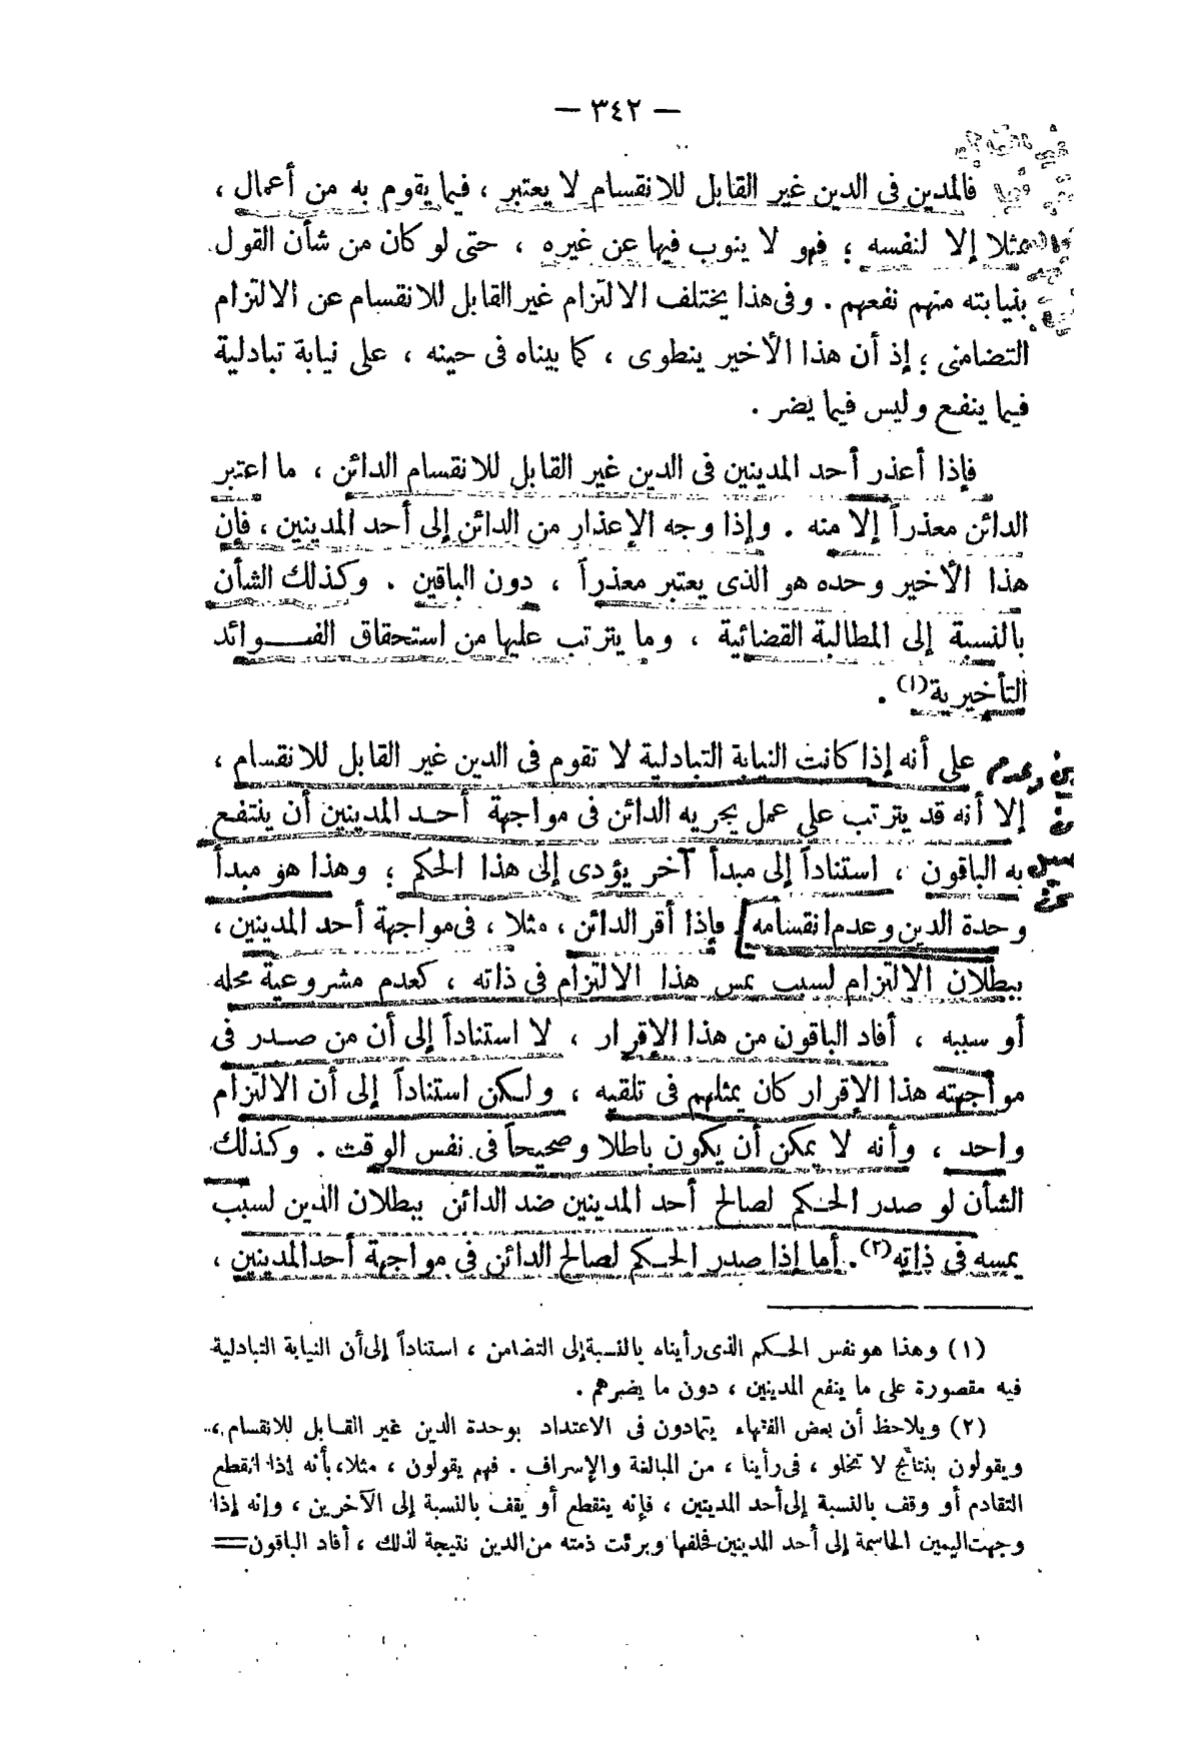 — ٣٤٢ —
فالمدين فى الدين غير القابل للانقسام لا يعتبر ، فيما يقوم به من أعمال ،
مثلا إلا لنفسه ؛ فهو لا ينوب فيها عن غيره ، حتى لو كان من شأن القول
بنيابته منهم نفعهم . وفى هذا يختلف الالتزام غير القابل للانقسام عن الالتزام
التضامنى ؛ إذ أن هذا الأخير ينطوى ، كما بيناه فى حينه ، على نيابة تبادلية
فيما ينفع وليس فيما يضر .
فإذا أعذر أحد المدينين فى الدين غير القابل للانقسام الدائن ، ما اعتبر
الدائن معذراً إلا منه . وإذا وجه الإعذار من الدائن إلى أحد المدينين ، فإن
هذا الأخير وحده هو الذى يعتبر معذراً ، دون الباقين . وكذلك الشأن
بالنسبة إلى المطالبة القضائية ، وما يترتب عليها من استحقاق الفوائد
التأخيرية(١) .
على أنه إذا كانت النيابة التبادلية لا تقوم فى الدين غير القابل للانقسام ،
إلا أنه قد يترتب على عمل يجريه الدائن فى مواجهة أحد المدينين أن ينتفع
به الباقون ، استناداً إلى مبدأ آخر يؤدى إلى هذا الحكم ؛ وهذا هو مبدأ
وحدة الدين وعدم انقسامه . فإذا أقر الدائن ، مثلا ، فى مواجهة أحد المدينين ،
ببطلان الالتزام لسبب يمس هذا الالتزام فى ذاته ، كعدم مشروعية محله
أو سببه ، أفاد الباقون من هذا الإقرار ، لا استناداً إلى أن من صدر فى
مواجهته هذا الإقرار كان يمثلهم فى تلقيه ، ولكن استناداً إلى أن الالتزام
واحد ، وأنه لا يمكن أن يكون باطلا وصحيحاً فى نفس الوقت . وكذلك
الشأن لو صدر الحكم لصالح أحد المدينين ضد الدائن ببطلان الدين لسبب
يمسه فى ذاته(٢) . أما إذا صدر الحكم لصالح الدائن فى مواجهة أحد المدينين ،
(١) وهذا هو نفس الحكم الذى رأيناه بالنسبة إلى التضامن ، استناداً إلى أن النيابة التبادلية
فيه مقصورة على ما ينفع المدينين ، دون ما يضرهم .
(٢) ويلاحظ أن بعض الفقهاء يتمادون فى الاعتداد بوحدة الدين غير القابل للانقسام ،
ويقولون بنتائج لا تخلو ، فى رأينا ، من المبالغة والإسراف . فهم يقولون ، مثلا ، بأنه إذا انقطع
التقادم أو وقف بالنسبة إلى أحد المدينين ، فإنه ينقطع أو يقف بالنسبة إلى الآخرين ، وإنه إذا
وجهت اليمين الحاسمة إلى أحد المدينين فحلفها وبرئت ذمته من الدين نتيجة لذلك ، أفاد الباقون =